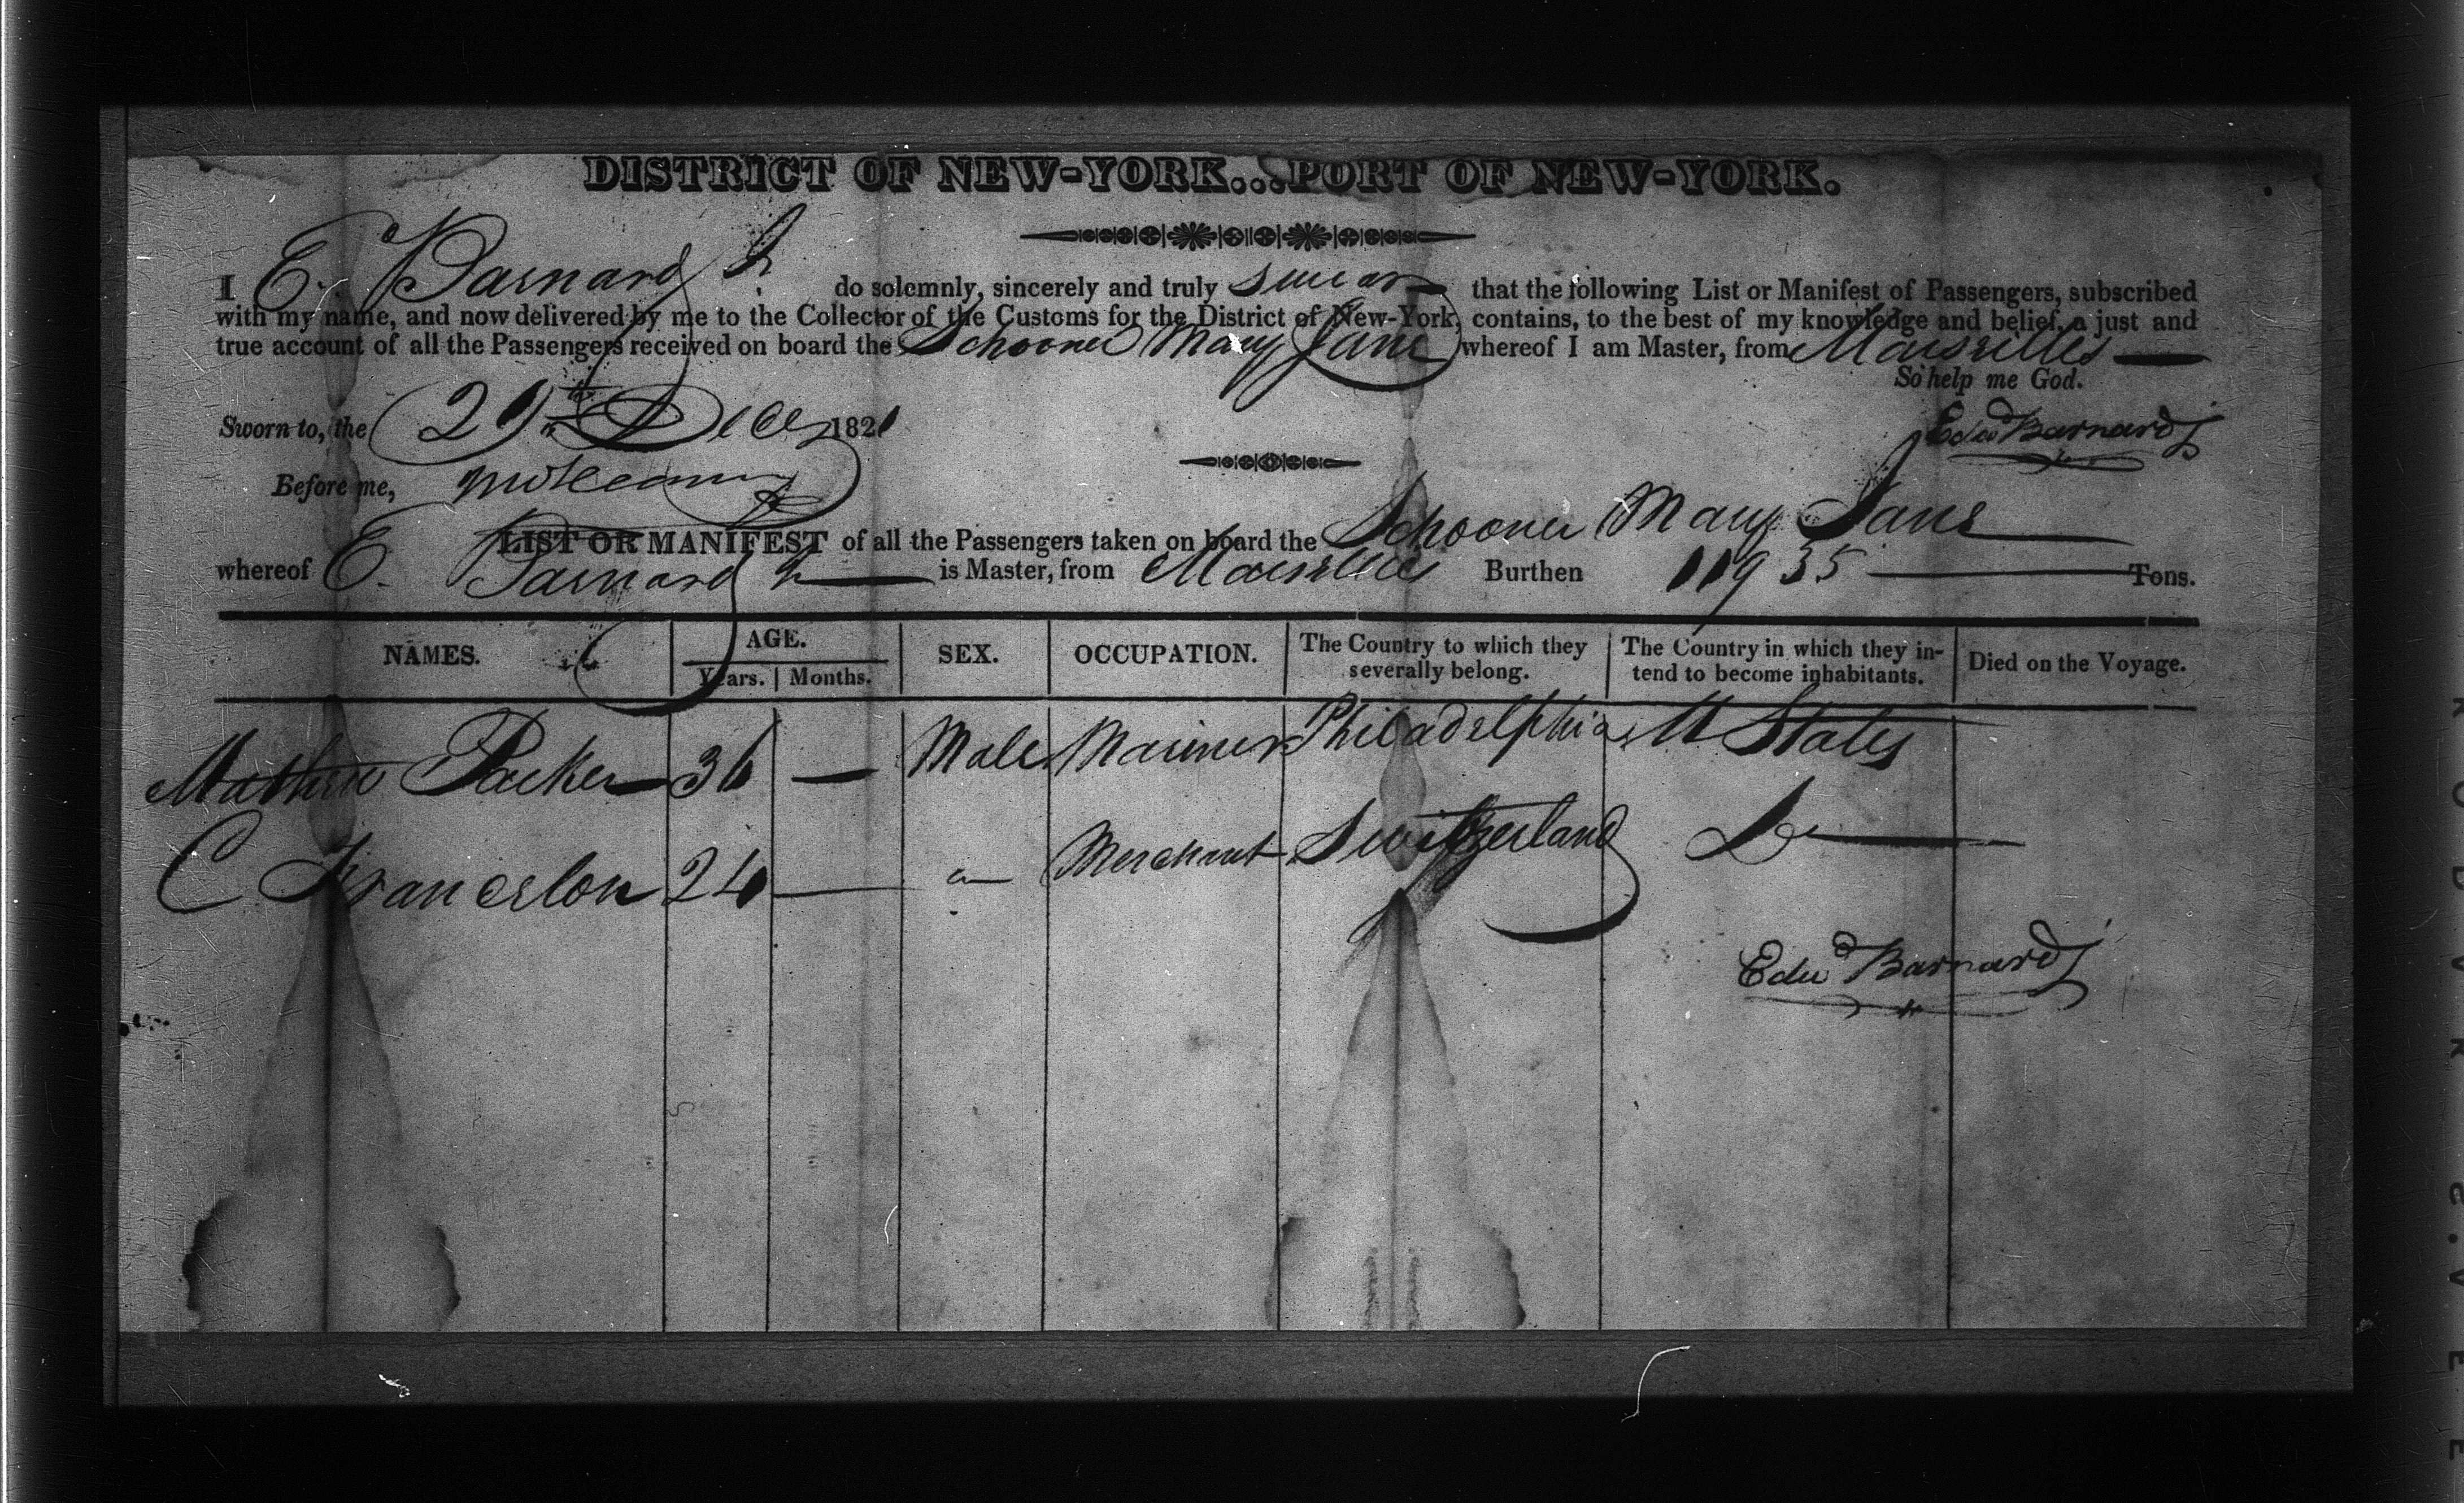 DISTRICT OF NEW-YORK...PORT OF NEW-YORK.
I E. Barnard Jr do solemnly, sincerely and truly swear that the following List or Manifest of Passengers, subscribed
with my name, and now delivered by me to the Collector of the Customs for the District of New-York, contains, to the best of my knowledge and belief, a just and
true account of all the Passengers received on board the Schooner Mary Jane whereof I am Master, from Marseilles
So help me God.
Sworn to, the 29th Decr 1821
Edwd Barnard J
Before me,
LIST OR MANIFEST of all the Passengers taken on board the Schooner Mary Jane
whereof E. Barnard Jr is Master, from Marseilles Burthen 119 35 Tons.
NAMES. AGE. Years. Months. SEX. OCCUPATION. The Country to which they severally belong. The Country in which they intend to become inhabitants. Died on the Voyage.
Mathew Packer 36 — Male Mariner Philadelphia U States
C 24 — Merchant Switzerland Do
Edwd Barnard J